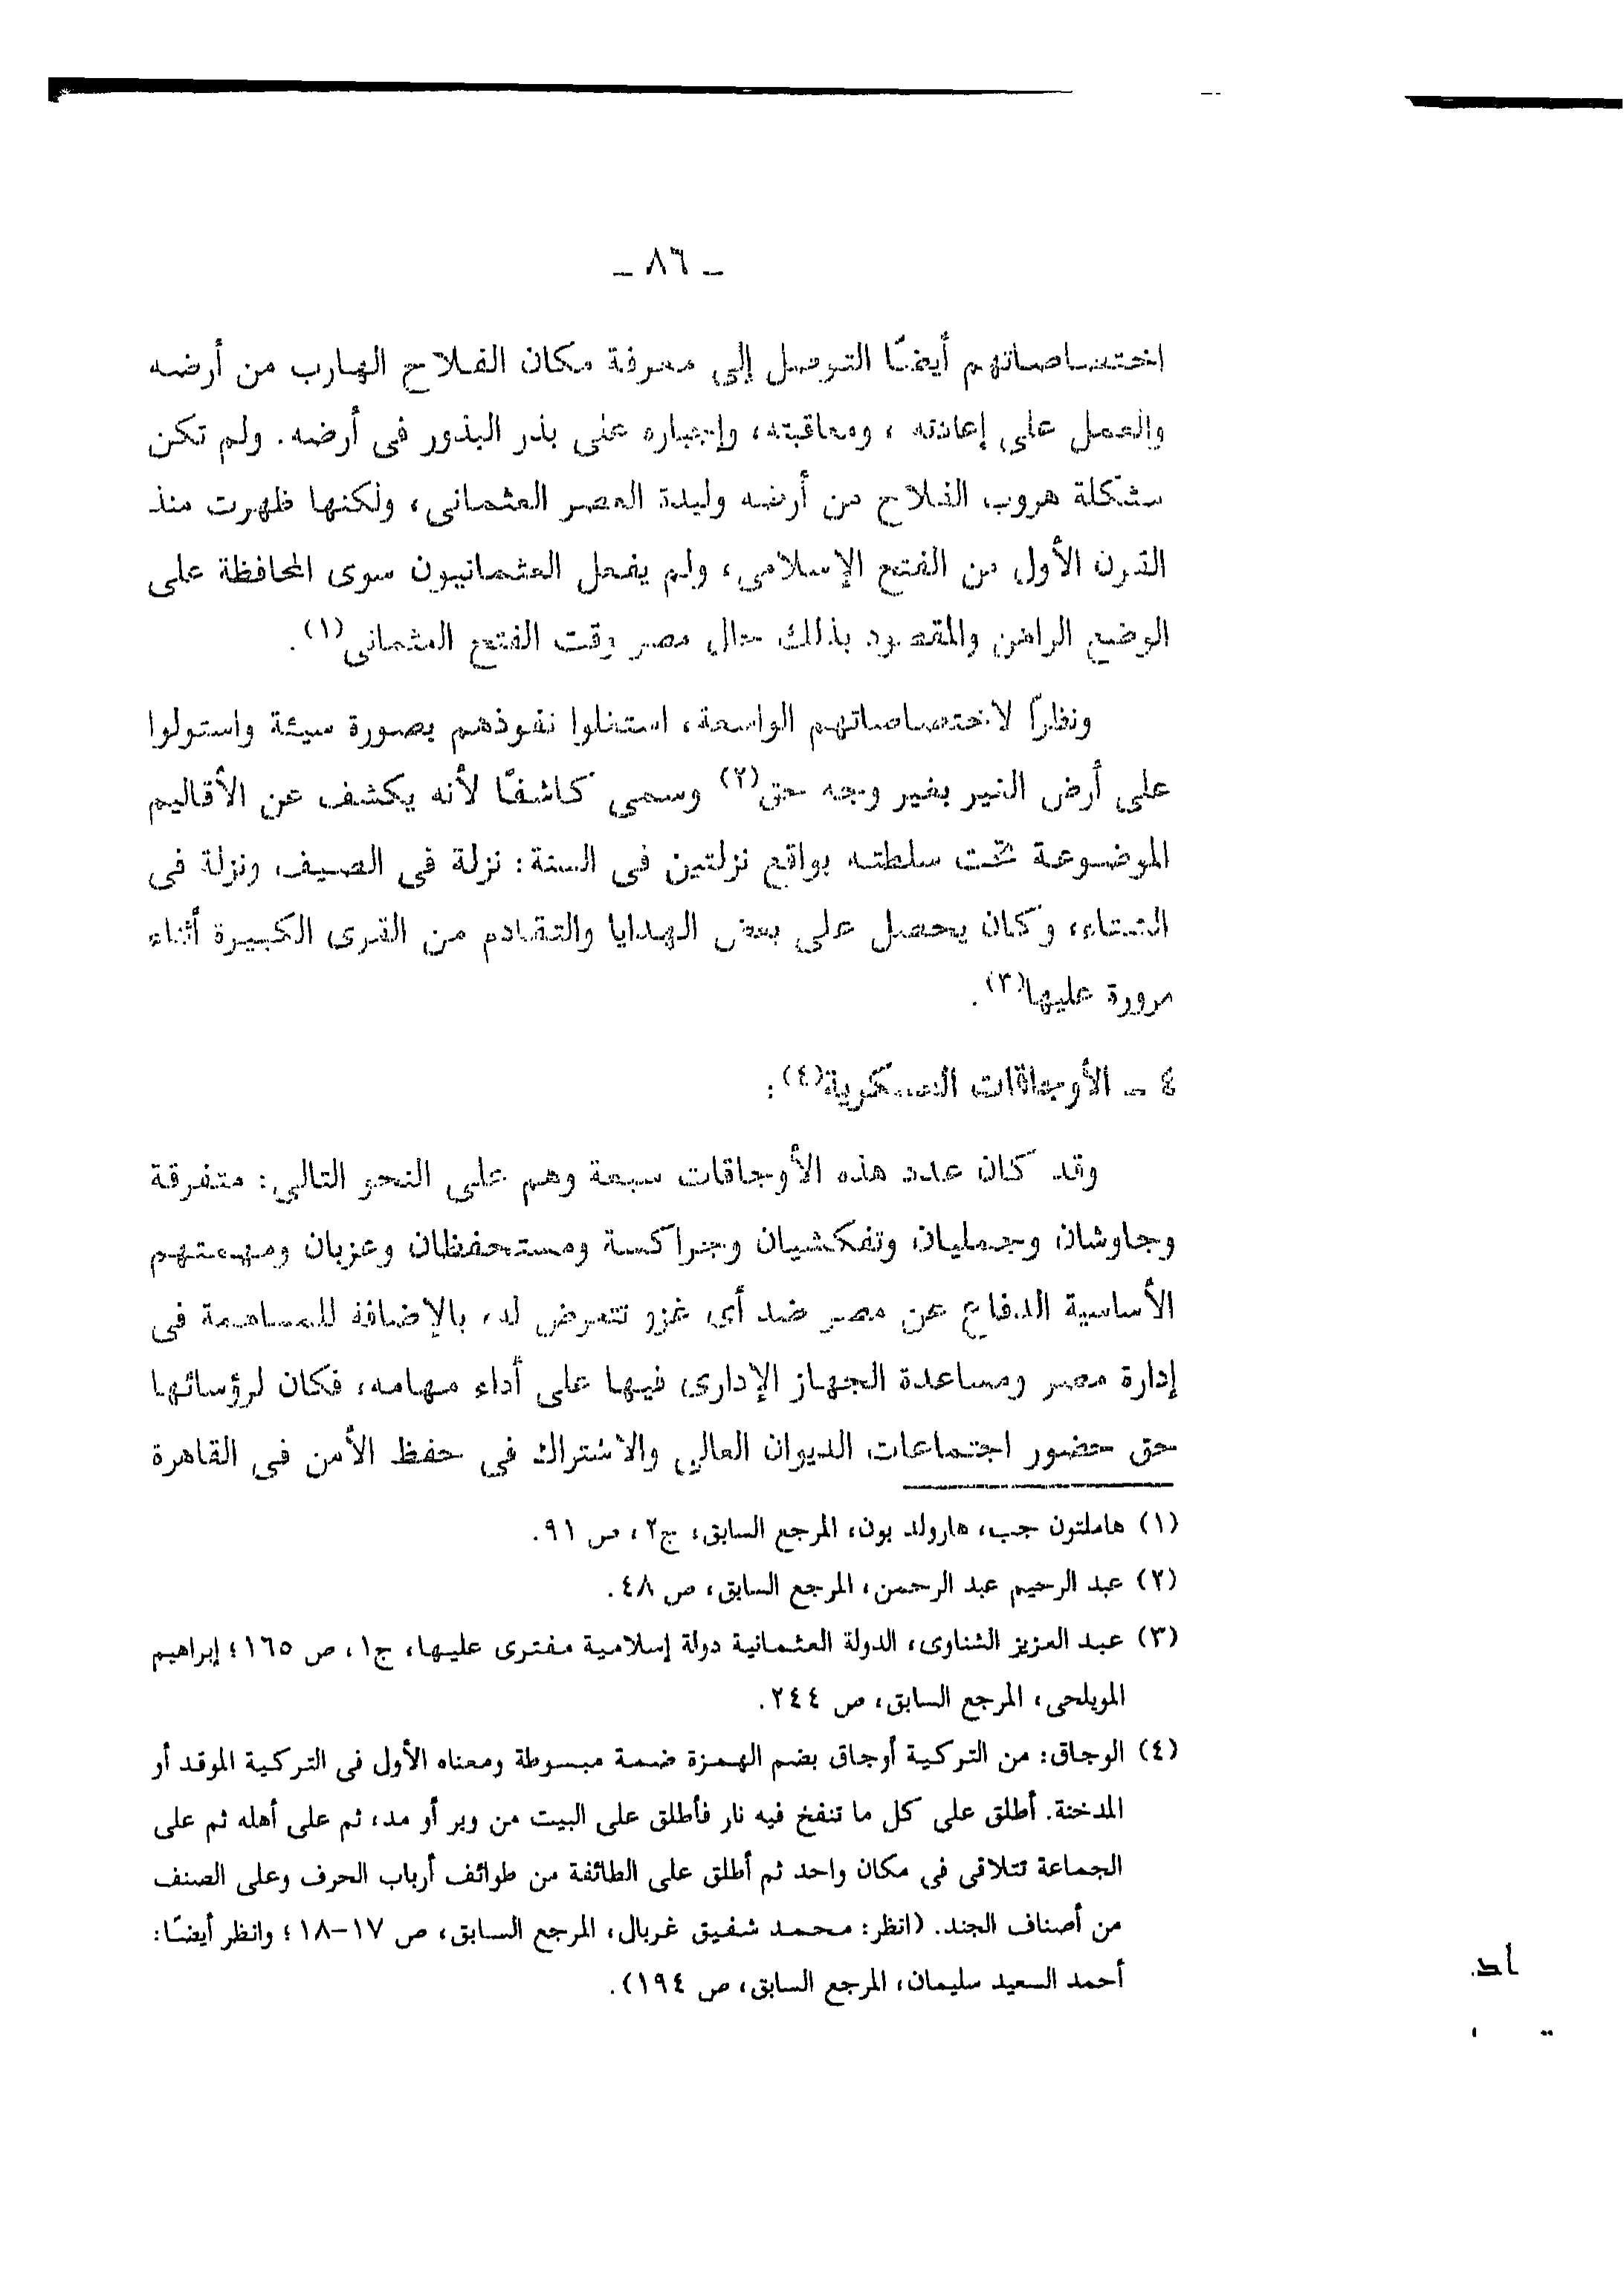 ـ ٨٦ ـ
اختصاصاتهم أيضًا التوصل إلى معرفة مكان الفلاح الهارب من أرضه
والعمل على إعادته ، ومعاقبته، وإجباره على بذر البذور فى أرضه. ولم تكن
مشكلة هروب الفلاح من أرضه وليدة العصر العثمانى، ولكنها ظهرت منذ
القرن الأول من الفتح الإسلامى، ولم يفعل العثمانيون سوى المحافظة على
الوضع الراهن والمقصود بذلك حال مصر وقت الفتح العثمانى(١).
ونظرًا لاختصاصاتهم الواسعة، استغلوا نفوذهم بصورة سيئة واستولوا
على أرض الغير بغير وجه حق(٢) وسمى كاشفًا لأنه يكشف عن الأقاليم
الموضوعة تحت سلطته بواقع نزلتين فى السنة: نزلة فى الصيف ونزلة فى
الشتاء، وكان يحصل على بعض الهدايا والتقادم من القرى الكبيرة أثناء
مرورة عليها(٣).
٤ ـ الأوجاقات العسكرية(٤):
وقد كان عدد هذه الأوجاقات سبعة وهم على النحو التالى: متفرقة
وجاوشان وجمليان وتفكشيان وجراكسة ومستحفظان وعزبان ومهمتهم
الأساسية الدفاع عن مصر ضد أى غزو تتعرض له، بالإضافة للمساهمة فى
إدارة مصر ومساعدة الجهاز الإدارى فيها على أداء مهامه، فكان لرؤسائها
حق حضور اجتماعات الديوان العالى والاشتراك فى حفظ الأمن فى القاهرة
(١) هاملتون جب، هارولد بون، المرجع السابق، ج٢، ص ٩١.
(٢) عبد الرحيم عبد الرحمن، المرجع السابق، ص ٤٨.
(٣) عبد العزيز الشناوى، الدولة العثمانية دولة إسلامية مفترى عليها، ج١، ص ١٦٥؛ إبراهيم
المويلحى، المرجع السابق، ص ٢٤٤.
(٤) الوجاق: من التركية أوجاق بضم الهمزة ضمة مبسوطة ومعناه الأول فى التركية الموقد أو
المدخنة. أطلق على كل ما تنفخ فيه نار فأطلق على البيت من وبر أو مد، ثم على أهله ثم على
الجماعة تتلاقى فى مكان واحد ثم أطلق على الطائفة من طوائف أرباب الحرف وعلى الصنف
من أصناف الجند. (انظر: محمد شفيق غربال، المرجع السابق، ص ١٧–١٨؛ وانظر أيضًا:
أحمد السعيد سليمان، المرجع السابق، ص ١٩٤).